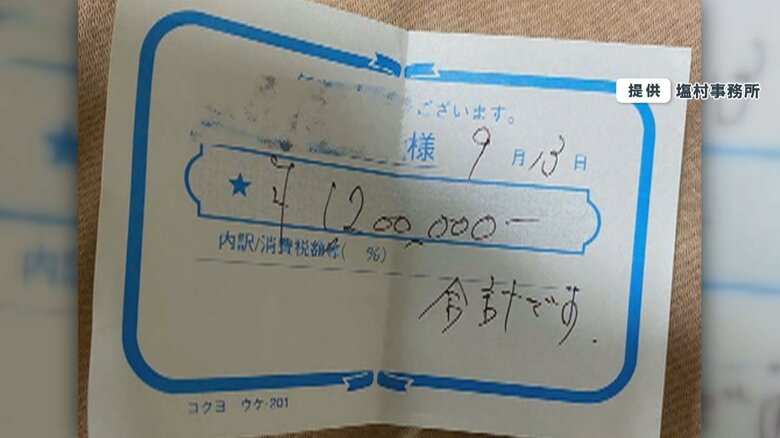 提供 塩村事務所
ございます。
様 9月13日
★ ¥1200,000-
内訳/消費税額等( %)
合計です.
コクヨ ウケ-201